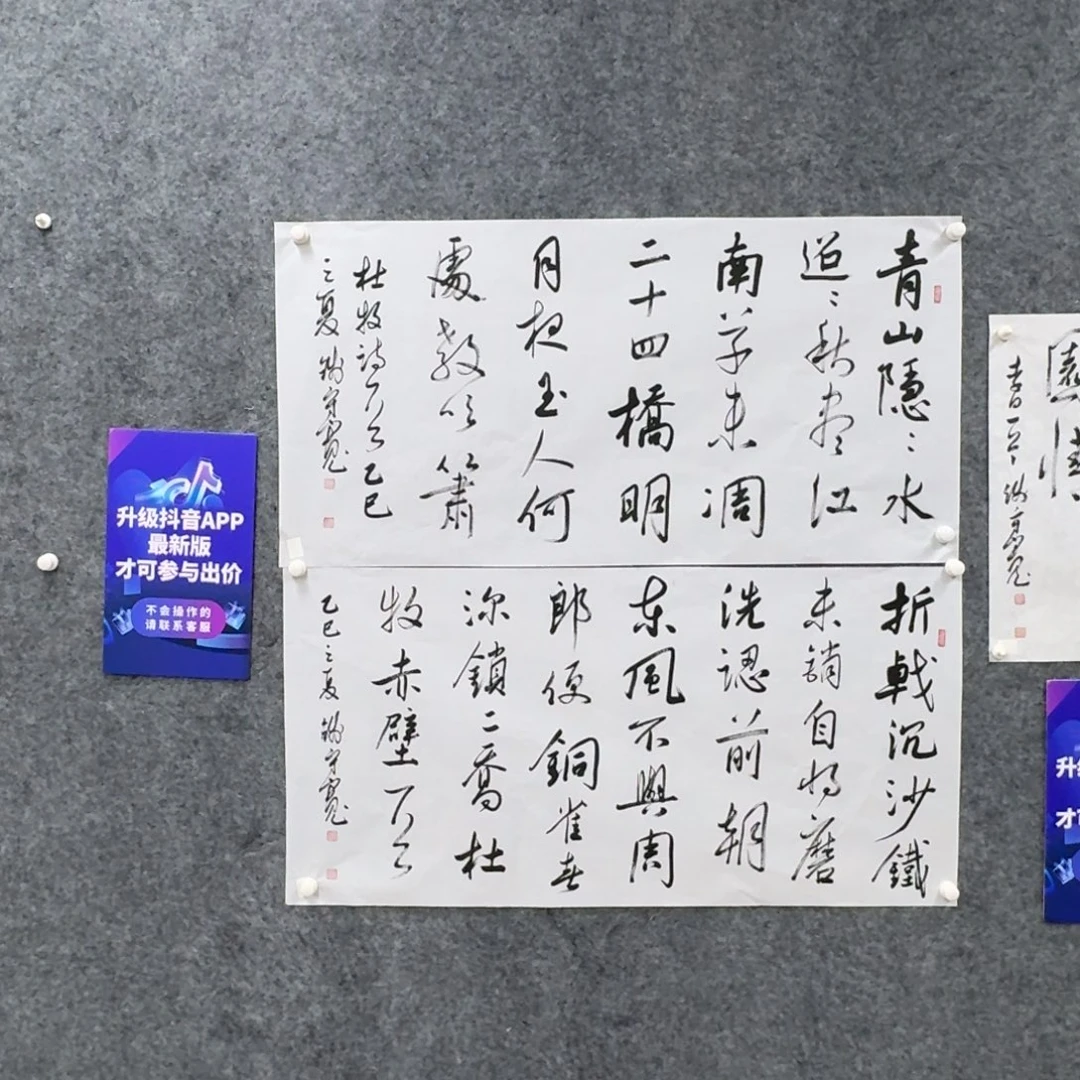 青山隱〻水
迢〻秋盡江
南草未凋
二十四橋明
月夜玉人何
處教吹簫
杜牧詩一首乙巳
之夏 守寬
折戟沉沙鐵
未銷自將磨
洗認前朝
東風不與周
郎便銅雀春
深鎖二喬杜
牧赤壁一首
乙巳之夏 守寬
升级抖音APP
最新版
才可参与出价
不会操作的
请联系客服
升
才可